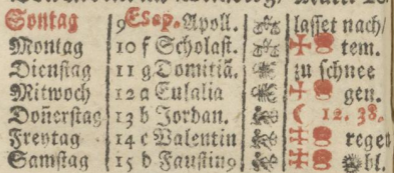 Sontag 9 Esto. Apoll. lasset nach/
Montag 10 f Scholast. tem.
Dienstag 11 g Domitiã. zu schnee
Mitwoch 12 a Eulalia gen.
Doñerstag 13 b Jordan. 12. 38.
Freytag 14 c Valentin reget
Samstag 15 d Faustin9 bl.